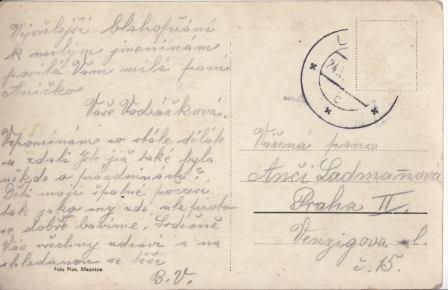 Nejvřelejší blahopřání
k milým jmeninám
posílá Vám milá paní
Aničko
Vaše Vodráčková.
Vzpomínám co stále děláte
a zdali jste již také byla
někde o prázdninách.
Děti mají špatné počasí
tak jako my zde, ale přesto
se dobře bavíme. Srdečně
Vás všechny zdraví a na
shledanou se těší
B. V.
Foto Fius, Březnice
Vážená paní
Anči Ladmanova
Praha II.
Venzigova ul.
č. 15.